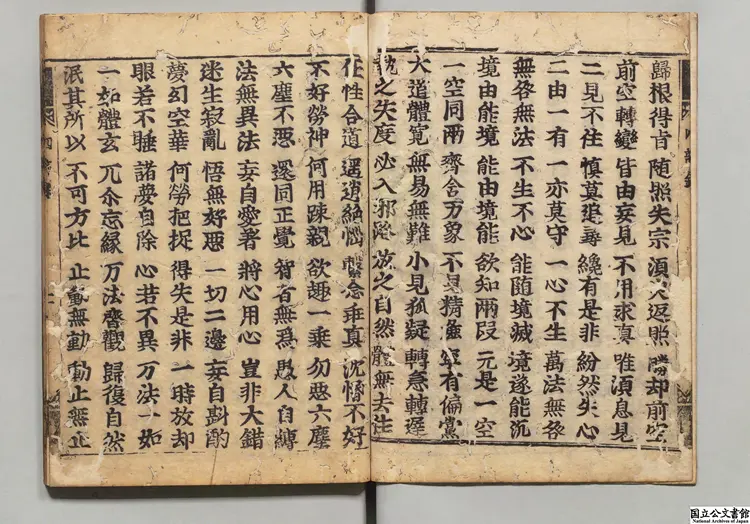 歸根得旨 随照失宗 湏臾返照 勝却前空
前空轉變 皆由妄見 不用求真 唯湏息見
二見不住 慎莫追尋 纔有是非 紛然失心
二由一有 一亦莫守 一心不生 萬法無咎
無咎無法 不生不心 能随境滅 境逐能沉
境由能境 能由境能 欲知兩段 元是一空
一空同兩 齊含万象 不見精麁 寧有偏黨
大道體寬 無易無難 小見狐疑 轉急轉遲
執之失度 必入邪路 放之自然 體無去住
任性合道 逍遥絶惱 繫念乖真 沉惛不好
不好勞神 何用踈親 欲趣一乗 勿惡六塵
六塵不惡 還同正覺 智者無爲 愚人自縛
法無異法 妄自愛著 將心用心 豈非大錯
迷生寂亂 悟無好惡 一切二邊 妄自斟酌
夢幻空華 何勞把捉 得失是非 一時放却
眼若不睡 諸夢自除 心若不異 万法一如
一如體玄 兀尒忘緣 万法齊觀 歸復自然
泯其所以 不可方比 止動無動 動止無止
国立公文書館
National Archives of Japan